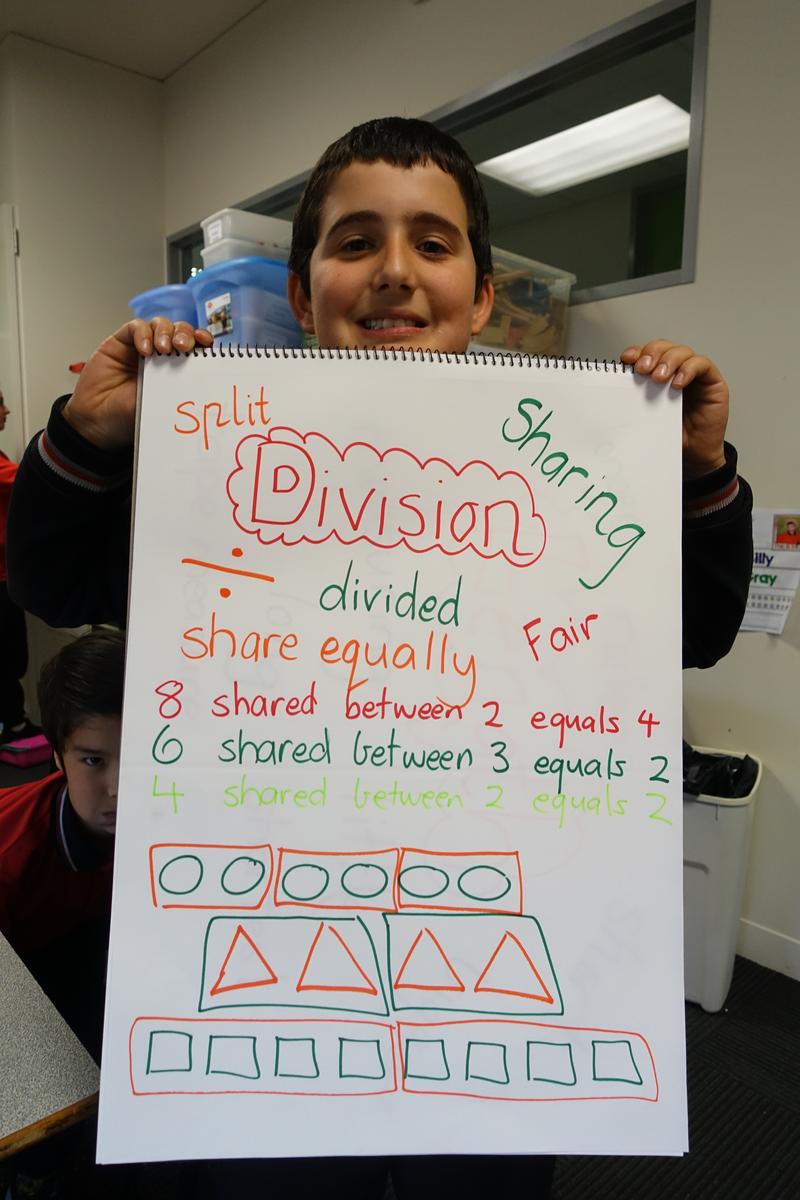 split
Sharing
Division
÷
divided
Fair
share equally
8 shared between 2 equals 4
6 shared between 3 equals 2
4 shared between 2 equals 2